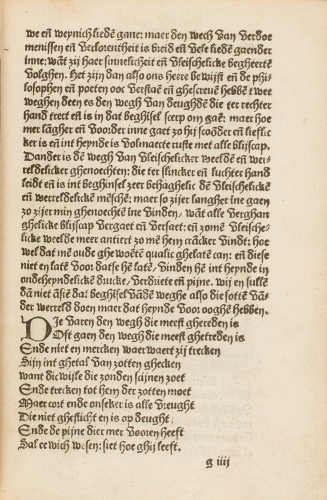 we eñ weynich lieden gane: maer den wech van verdoe
menissen eñ verlorentheit is breid eñ vele liede gaender
inne: wāt zij haer sinnelicheit eñ vleischelicke begheerte
volghen. Het zijn dan also ons heere bewijst en de phi
losophen eñ poeten ooc verstaē eñ ghescreuē hebbē twee
weghen deen es den wegh van deughdē die ter rechter
hand trect eñ is in dat beghisel scerp om gaē: maer hoe
mer lāgher eñ voorder inne gaet zo hij scoōder eñ lieflic
ker is eñ int heynde is volmaecte ruste met alle blijscap.
Dander is dē wegh van vleischelicker weeldē eñ wei-
reldelicker ghenochten: die ter slincker eñ luchter hand
leidt eñ is int beghinsel zeer behaghelic dē vleischelickē
eñ werreldelickē mēschē: maer so zijer langher ine gaen
zo zijer min ghenochtē ine vinden, wāt alle verghan
ghelicke blijscap vergaet eñ versaet: eñ zomē vleische-
licke weelde meer antiert zo mē hem crācker vindt: hoe
wel dat mē oude ghewoētē qualic ghelatē can: eñ diese
niet en latē voor datse hē latē, vinden hē int heynde in
ondeheyndelickē druckē, verdriete eñ pijne. wij en sullē
dā niet āsiē dat beghisel vādē weghe also die sotte vā-
der wereld doen maer dat heynde voor ooghē hebben.
Die varen den wegh die meest ghereden is
Oft gaen den wegh die meest ghetreden is
Ende niet en mercken waer waert zij trecken
Sijn int ghetal van zotten ghecken
want dicwijle die zonden scijnen zoet
Ende trecken tot hem der zotten moet
Maer cort ende onseker is alle vreught
Die niet ghesticht en is op deught
Ende de pijne dier mer vooren heeft
Sal eewich wesen: siet hoe ghij leeft.
g iiij